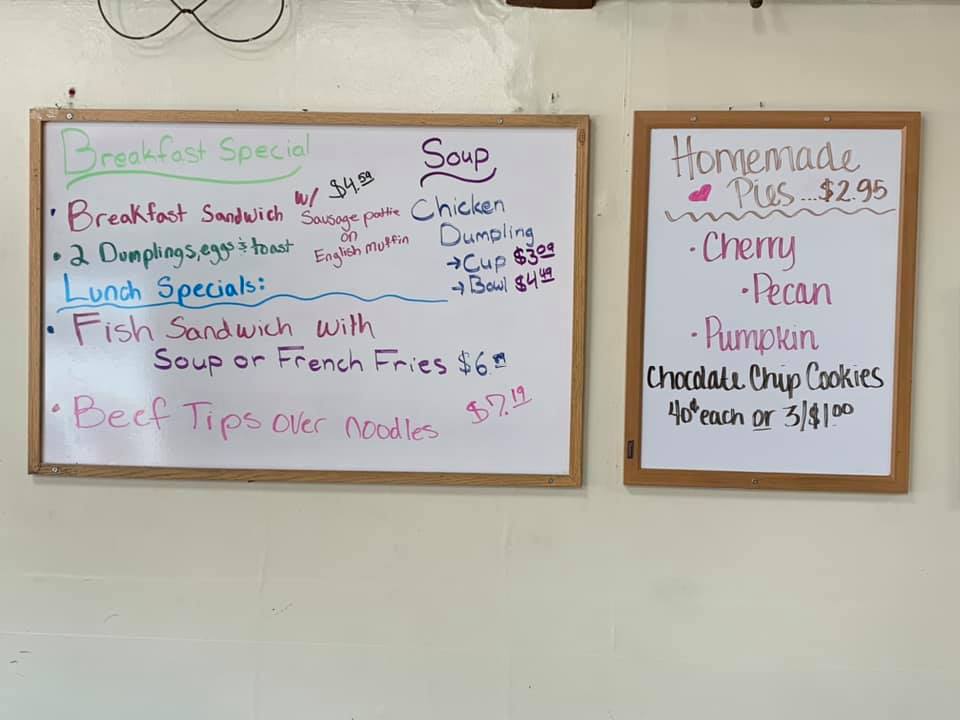 Breakfast Special
• Breakfast Sandwich w/ $4.59
Sausage pattie
on
English muffin
• 2 Dumplings, eggs & toast
Soup
Chicken
Dumpling
→ Cup $3.09
→ Bowl $4.49
Lunch Specials:
• Fish Sandwich with
Soup or French Fries $6.
• Beef Tips over noodles $7.19
Homemade
Pies...$2.95
• Cherry
• Pecan
• Pumpkin
Chocolate Chip Cookies
40¢ each or 3/$1.00